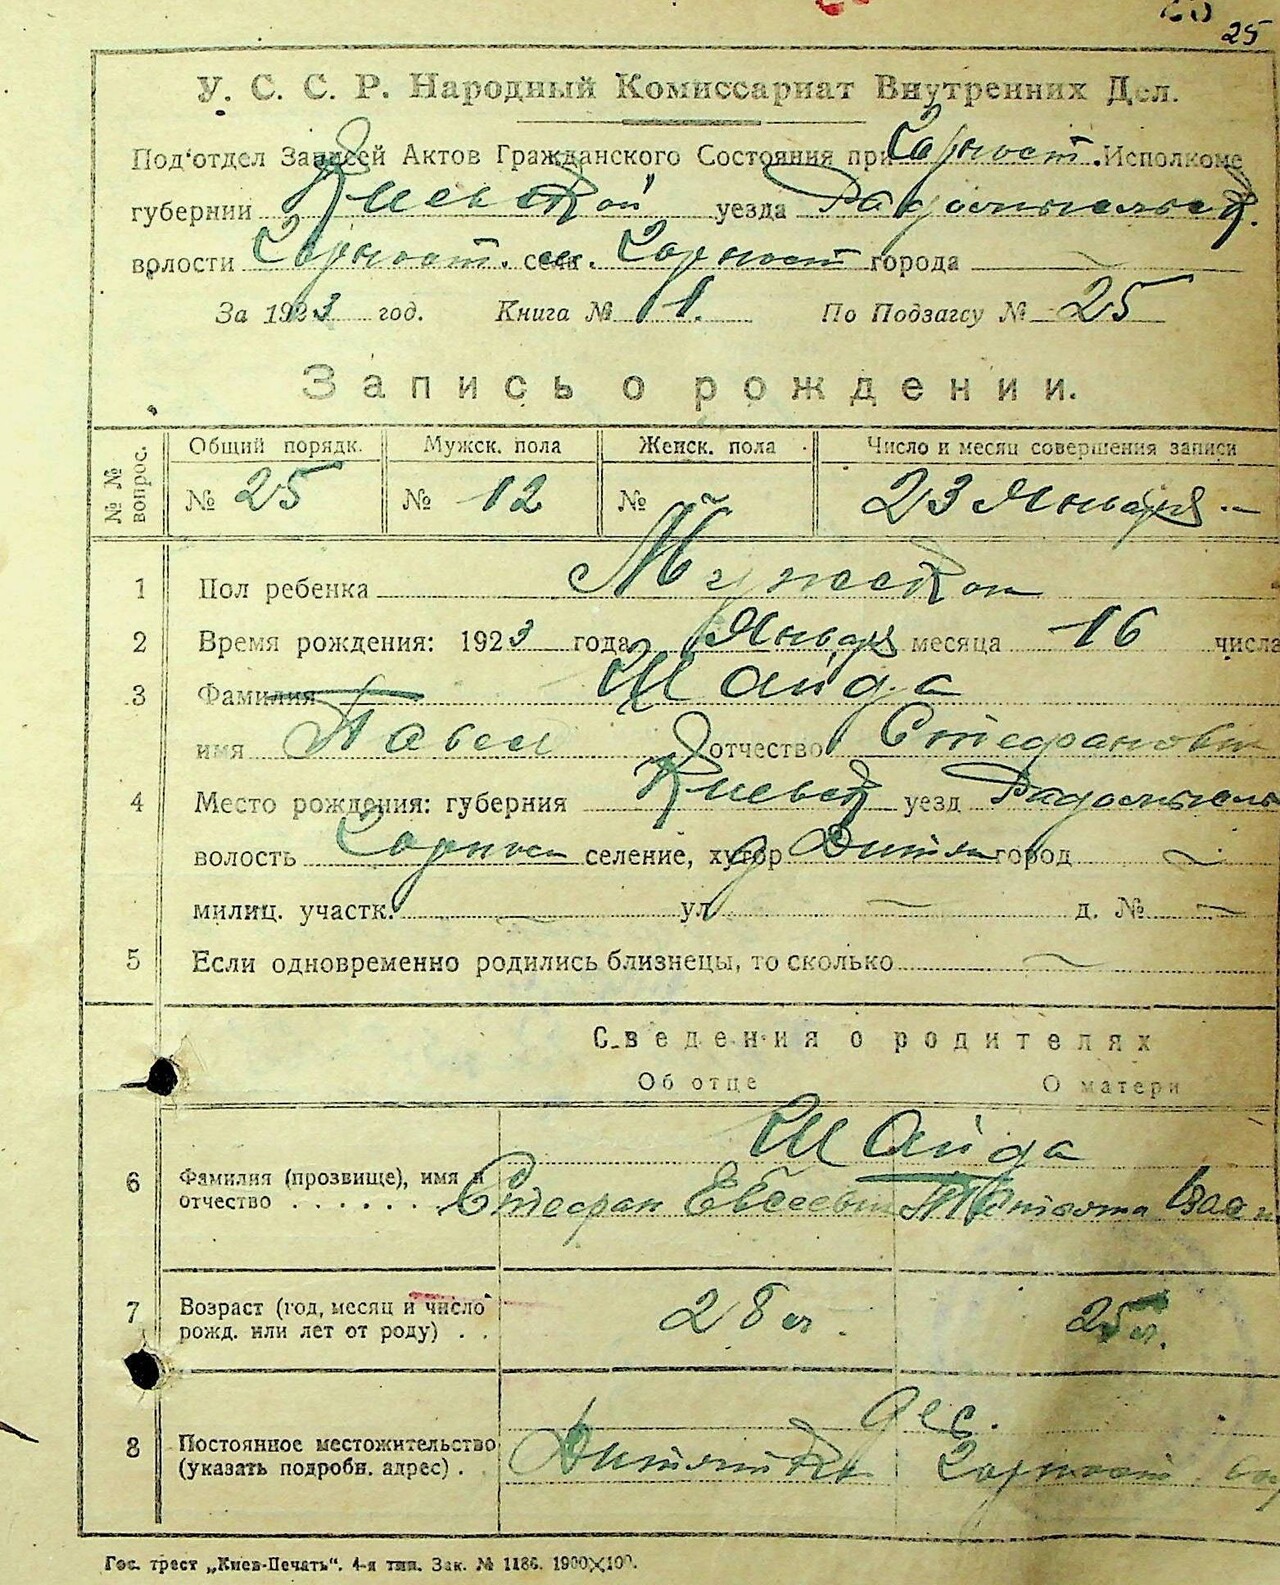 25
У. С. С. Р. Народный Комиссариат Внутренних Дел.
Под'отдел Записей Актов Гражданского Состояния при Горност. Исполкоме
губернии Киевской уезда Радомысльск.
волости Горност. села м. Горностай города —
За 1923 год. Книга № 1. По Подзагсу № 25
Запись о рождении.
№ № вопрос. Общий порядк. Мужск. пола Женск. пола Число и месяц совершения записи
№ 25 № 12 № 23 Января
1 Пол ребенка Мужской
2 Время рождения: 1923 года Январь месяца 16 числа
3 Фамилия Шайда
имя Павел отчество Стефанович
4 Место рождения: губерния Киевск уезд Радомысль
волость Горност селение, хутор д Витян город —
милиц. участк. — ул — д. № —
5 Если одновременно родились близнецы, то сколько —
Сведения о родителях
Об отце О матери
Шайда
6 Фамилия (прозвище), имя и
отчество . . . . . . . Стефан Евсеевич
7 Возраст (год, месяц и число
рожд. или лет от роду) . . 28 л. 25 л.
дес.
8 Постоянное местожительство
(указать подробн. адрес) . Витятков Горност.
Гос. трест „Киев-Печать“. 4-я тип. Зак. № 1186. 1900×100.